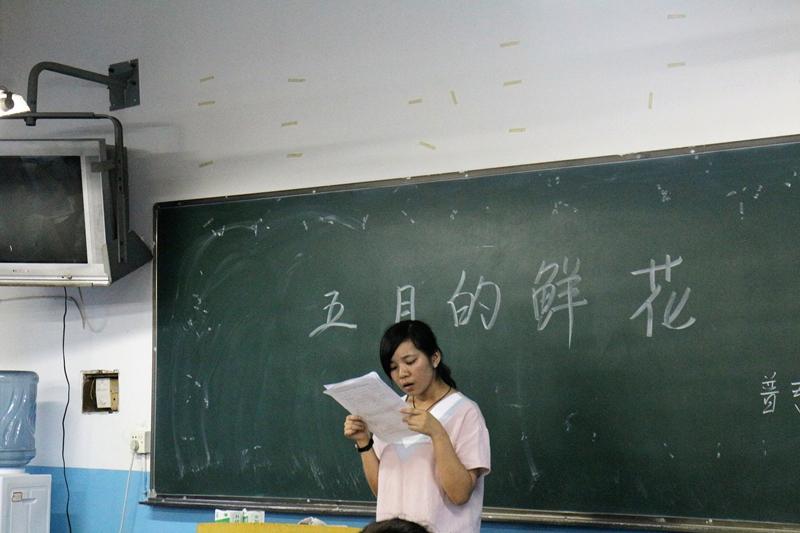 五月的鲜花